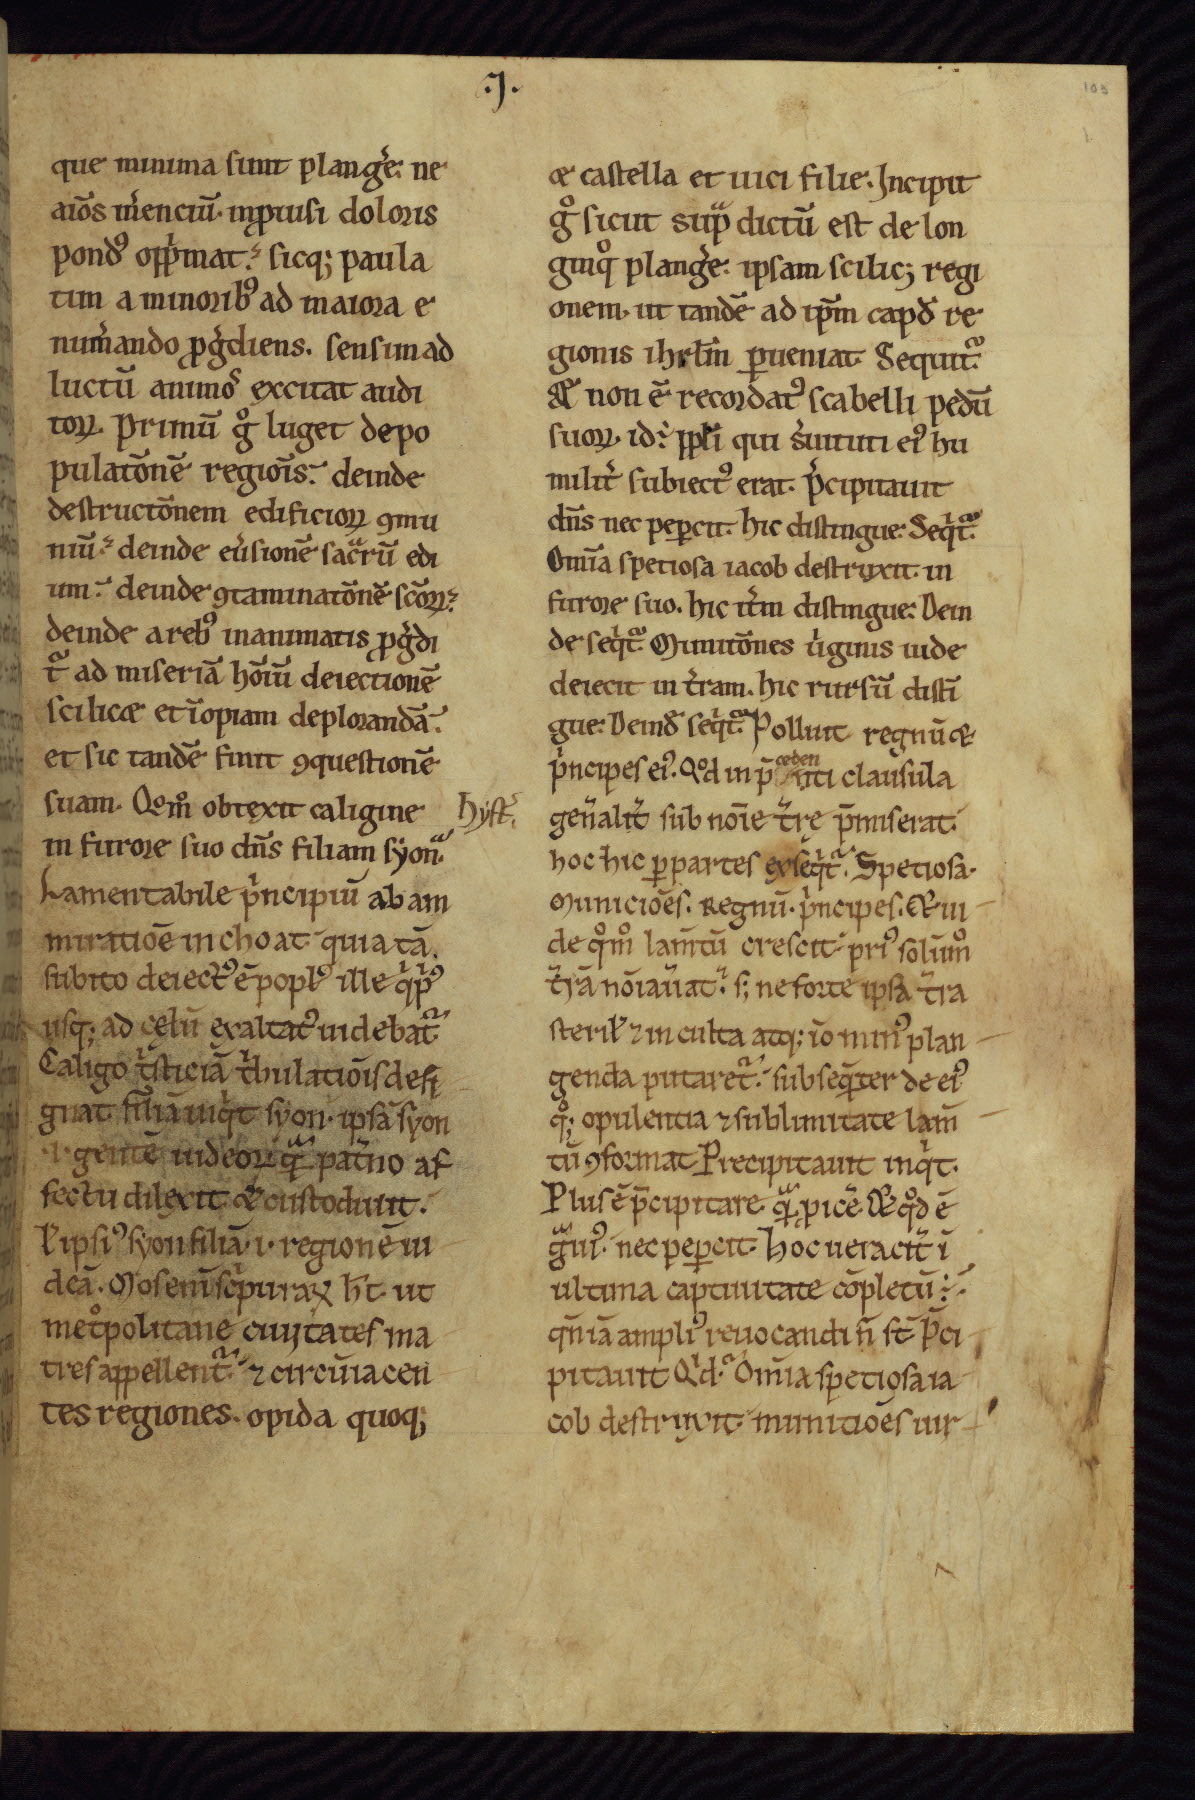 ·J·
105
que minima sunt plang̉e: ne
aiōs m̉enciū· inp̱uisi doloris
pond⁹ opp̉mat: sicq; paula
tim a minorib⁹ ad maiora e
num̉ando p̱g̉diens. sensim ad
luctū animos̉ excitat audi
toꝝ. Primū gͦ luget depo
pulatōnē regiōis: deinde
destructōnem edificioꝝ ꝯmu
niū: deinde eu̓sionē sac̉rū edi
um: deinde ꝯtaminatōnē scōꝝ:
deinde a reb⁹ inanimatis p̱g̉di
t̃ ad miseriā hōiū deiectionē
scilicæ et īopiam deplorandā:
et sic tandē finit ꝯquestionē
suam. Qͦmͦ obtexit caligine
in furore suo dn̄s filiam syonͣ
hyst̉.
Lamentabile p̉ncipiū ab am
miratiōe inchoat quia tā
subito deiect⁹ ē popl̓⁹ ille q̉ p̉⁹
usq; ad cęlū exaltat⁹ uidebat̃
Caligo t̉sticiā t̉bulatiōis desi
gnat filiā inq̉t syon· ipsā syon
·i· gentē iudeoꝝ qͣ pat̉no af
fectu dilexit & custodiuit.
ł ipsi⁹ syon filiā ·i· regionē iu
deā. Mos enī sc̉pturaꝝ h̄t ut
met̊politane ciuitates ma
tres appellent̃: ⁊ circūiacen
tes regiones. opida quoq;
& castella et uici filie. Incipit
gͦ sicut supͣ dictū est de lon
ginqͦ plang̉e: ipsam scilicꝫ regi
onem. ut tandē ad ip̄m capd̓ re
gionis ihrl̄m ꝑueniat Sequit̃
& non ē recordat⁹ scabelli pedū
suoꝝ. id: pp̱li qui s̓uituti ei⁹ hu
milit̉ subiect⁹ erat. p̉cipitauit
dn̄s nec peꝑcit. hic distingue: Seq̉t̃
Omīa spetiosa iacob destruxit in
furore suo. hic it̉m distingue: Dein
de seq̉t̃ Munitōnes u̓ginis iude
deiecit in t̉ram. hic rursū disti
gue: Deind̓ seq̉t̃ Polluit regnū &
p̉ncipes ei⁹. Qͦd in p̄ceden
nti clausula
gen̓alit̉ sub noīe t̉re p̄miserat
hoc hic ꝑ partes exseq̉t̃. Spetiosa.
Municiōes. Regnū. p̉ncipes. & ui
de qͦmͦ lam̄tū crescit pri⁹ solūmͦ
t̉rā noīau̓at. s; ne forte ipsa t̉ra
steril̓ ⁊ inculta atq; iō min⁹ plan
genda putaret̃: subseq̄ter de ei⁹
qͦ; opulentia ⁊ sublimitate lam̄
tū ꝯformat Precipitauit inq̉t.
Plus ē p̄cipitare qͣ ꝓicẻ & qͦd ē
gͣui⁹. nec peꝑcit Hoc ueracit̉ ī
ultima captiuitate cōpletū:
qn̄ iā ampli⁹ reuocandi n̄ st̄ p̄ci
pitauit Q̉d. Omīa spetiosa ia
cob destruxit munitiōes uir